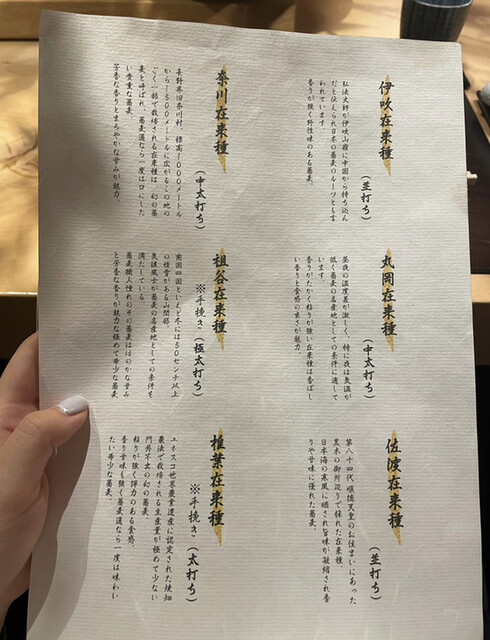 伊吹在来種
(並打ち)
弘法大師が伊吹山麓に中国から持ち込ん
だと伝えられ日本の蕎麦のルーツとも言
われています。
香りが強く野性味のある蕎麦。
丸岡在来種
(中太打ち)
昼夜の温度差が激しく、特に夜は気温が
低く蕎麦の名産地としての条件に適して
います。
香りがたかく粘りが強い在来種は香ばし
い香りと食感の良さが魅力
佐渡在来種
(並打ち)
第八十四代順徳天皇のお住まいにあった
黒木の御所辺りで採れた在来種。
日本海の寒風に晒され旨味が凝縮され香
りや甘味に優れた蕎麦。
奈川在来種
(中太打ち)
長野県旧奈川村 標高1000メートル
から1500メートルに広がるこの地の
ごく一部で栽培される在来種は、幻の蕎
麦と呼ばれ、蕎麦通なら一度は口にした
い貴重な蕎麦。
芳香な香りとまろやかな甘みが魅力。
祖谷在来種
※手挽き(極太打ち)
南国四国といえど冬には50センチ以上
の積雪がある山間部。
気候風土が蕎麦の名産地としての条件を
満たしている。
蕎麦職人憧れのその蕎麦はほのかな甘み
と芳香な香りが魅力な極めて希少な蕎麦
椎葉在来種
※手挽き(太打ち)
ユネスコ世界農業遺産に認定された焼畑
農法で栽培される生産量が極めて少ない
門外不出の幻の蕎麦。
粘りが強く弾力のある食感、
香り甘味も強く蕎麦通なら一度は味わい
たい希少な蕎麦。